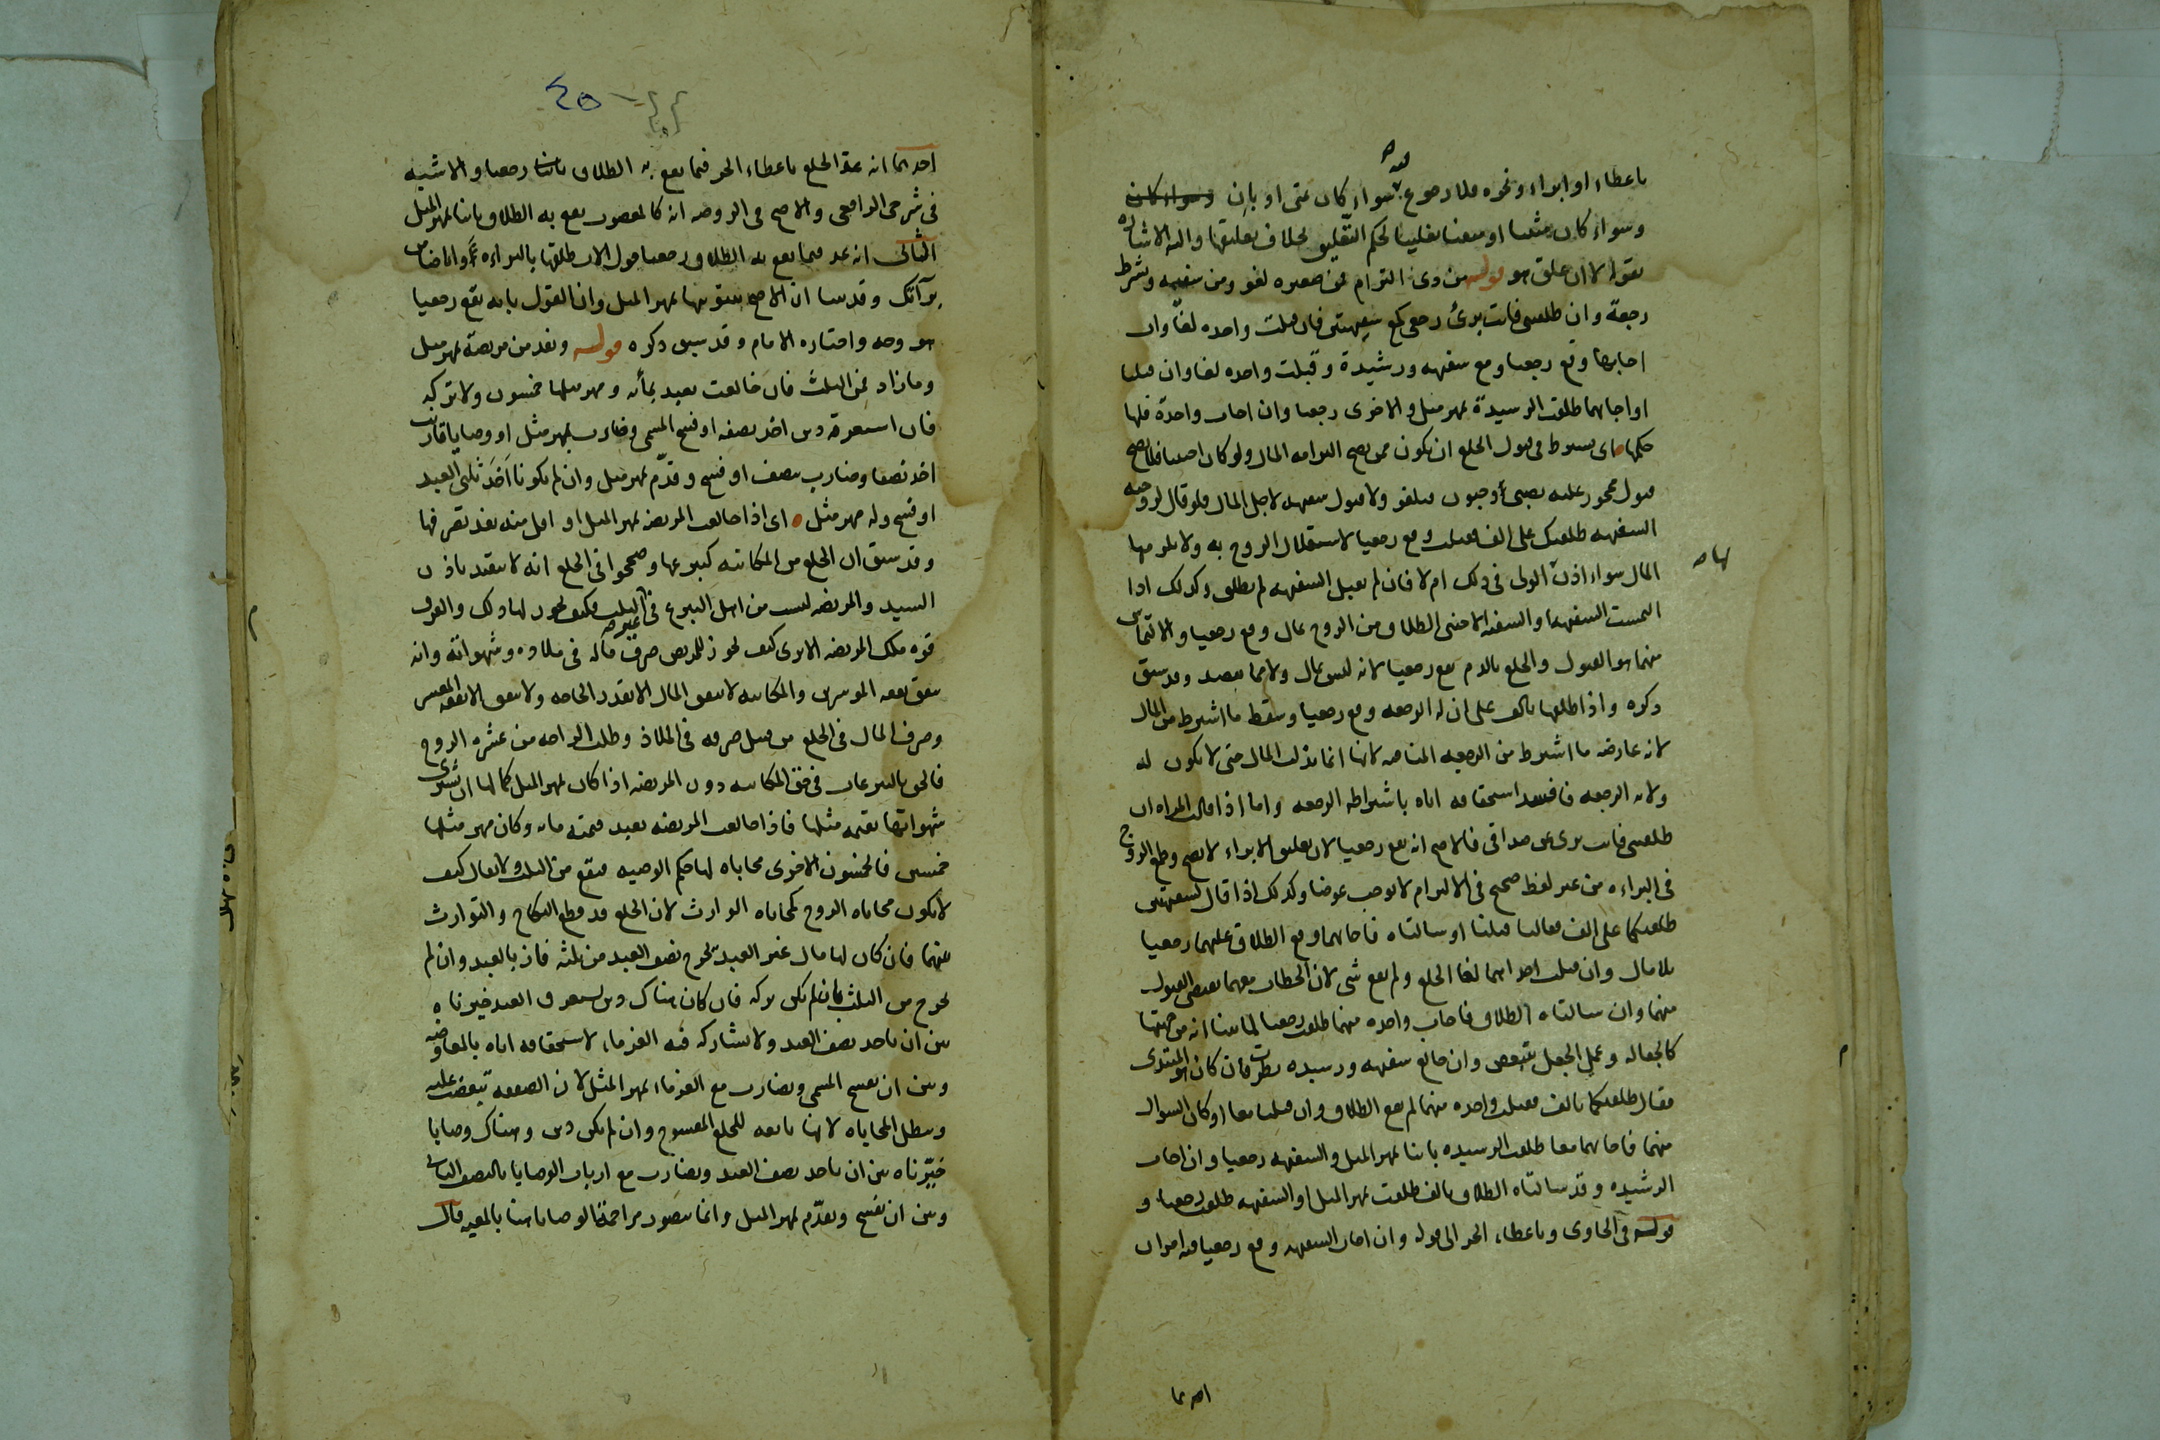 باعطاء او ابراء ونحوه فلا رجوع سواء كان بمتى او بان
وسواء كان مثبتا او منفيا تغليبا لحكم التعليق بخلاف تعليقها واليه الاشارة
بقوله لا ان علق هو قوله من ذى التزام فمن صغيره لغو ومن سفيه وشرط
رجعة وان طلقتنى فانت برئ رجعى كمع سفيهتين فان قبلت واحده لغا وان
اجابهما وقع رجعيا ومع سفيهه ورشيدة وقبلت واحده لغا وان قبلتا
او اجابهما طلقت الرشيدة بمهر مثل والاخرى رجعيا وان اجاب واحدة فلها
حكمها اى يشترط فى قبول الخلع ان يكون ممن يصح التزامه المال ولو كان اجنبيا فلا يصح
قبول محجور عليه بصبى أو جنون فيلغو ولا قبول سفيهه لاجل المال فلو قال لزوجته
السفيهه طلقتك على الف فقبلت وقع رجعيا لاستقلال الزوج به ولا يلزمها
المال سواء اذن الولى فى ذلك ام لا فان لم تقبل السفيهه لم تطلق وكذلك اذا
التمست السفيهه او السفيه الاجنبى الطلاق من الزوج بمال وقع رجعيا والالتماس
منهما هو القبول والخلع بالدم يقع رجعيا لانه ليس بمال ولا مما يقصد وقد سبق
ذكره واذا طلقها بالف على ان له الرجعه وقع رجعيا وسقط ما اشترط من المال
لانه عارضه ما اشترط من الرجعيه المنافيه لانها انما بذلت المال حتى لا يكون له
ولاية الرجعه فافسد استحقاقه اياه باشتراطه الرجعه واما اذا قالت المراه ان
طلقتنى فانت برى من صداقى فالاصح انه يقع رجعيا لان تعليق الابراء لا يصح وطمع الزوج
فى البراءه من غير لفظ صحيح فى الالتزام لا يوجب عوضا وكذلك اذا قال لسفيهتين
طلقتكما على الف فقالتا قبلنا او سالتاه فاجابهما وقع الطلاق عليهما رجعيا
بلا مال وان قبلت احداهما لغا الخلع ولم يقع شى لان الخطاب معهما يقتضى القبول
منهما وان سالتاه الطلاق فاجاب واحده منهما طلقت رجعيا لما بينا انه من جهتها
كالجعاله وعمل الجعل يتبعض وان خالع سفيهه ورشيده نظرت فان كان هو المبتدى
فقال طلقتكما بالف فقبلت واحده منهما لم يقع الطلاق وان قبلتا معا او كان السوال
منهما فاجابهما معا طلقت الرشيده باينا بمهر المثل والسفيهه رجعيا وان اجاب
الرشيده وقد سالتاه الطلاق بالف طلقت بمهر المثل او السفيهه طلقت رجعيا و
قوله فى الحاوى وباعطاء الحر الى قوله وان اجاز السفيهه وقع رجعيا فيه امران
احدهما
٤٥
احدهما انه عد الخلع باعطاء الحر فيما يقع به الطلاق باينا رجعيا والاشبه
فى شرحى الرافعى والاصح فى الروضه انه كالمغصوب يقع به الطلاق باينا بمهر المثل
الثانى انه عد فيما يقع به الطلاق رجعيا قول الاب طلقها بالبراءه
براتك وقدمنا ان الاصح بينونتها بمهر المثل وان القول بانه يقع رجعيا
هو وجه واختاره الامام وقد سبق ذكره قوله ونفذ من مريضة بمهر مثل
وما زاد فمن الثلث فان خالعت بعبد بمأيه ومهر مثلها خمسون ولا تركه
فان استغرقه دين اخذ نصفه او فسخ المسمى وضارب بمهر مثل او وصايا قارنت
اخذ نصفا وضارب بنصف او فسخ وقدّم بمهر مثل وان لم يكونا اخذ ثلثى العبد
او فسخ وله مهر مثل اى اذا خالعت المريضه بمهر المثل او اقل منه نفذ تصرفها
وقد سبق ان الخلع من المكاتبه كتبرعها وصححوا فى الخلع انه لا ينفذ باذن
السيد والمريضه ليست من اهل التبرع فى غير الثلث فكيف يجوز لها ذلك والفرق
قوة ملك المريضه الا ترى كيف يجوز للمريض صرف ماله فى ملاذه وشهواته وانه
ينفق نفقه الموسرين والمكاتبه لا تنفق المال الا بقدر الحاجه ولا ينفق الا نفقه المعسر
وصرف المال فى الخلع من قبيل صرفه فى الملاذ وطلب الراحه من عشره الزوج
فالحق بالتبرعات فى حق المكاتبه دون المريضه اذا كان بمهر المثل كما لها ان تشترى
شهواتها بقيمه مثلها فاذا خالعت المريضه بعبد قيمته مايه وكان مهر مثلها
خمسين فالخمسون الاخرى محاباه لها حكم الوصيه فتقع من الثلث ولا يقال كيف
لا يكون محاباه الزوج كمحاباه الوارث لان الخلع قد قطع النكاح والتوارث
بينهما فان كان لها مال غير العبد يخرج نصف العبد من ثلثه فاز بالعبد وان لم
يخرج من الثلث بان لم تكن تركه فان كان هناك دين يستغرق العبد خيرناه
بين ان ياخذ نصف العبد ولا يشاركه فيه الغرماء لاستحقاقه اياه بالمعاوضه
وبين ان يفسخ المسمى ويضارب مع الغرماء بمهر المثل لان الصفقه تبعضت عليه
وتبطل المحاباه لانها تابعه للخلع المفسوخ وان لم يكن دين وهناك وصايا
خيّرناه بين ان ياخذ نصف العبد ويضارب مع ارباب الوصايا بالنصف الثانى
وبين ان يفسخ ويقدّم بمهر المثل وانما يتصور مزاحمة الوصايا هنا بالمعيه فان